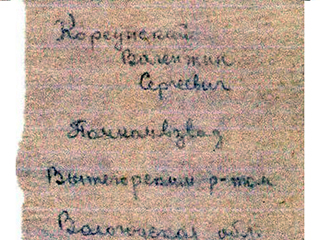 Корсунский
Валентин
Сергеевич
Помкомвзвод
Вытегорским р-том
Вологодская обл.